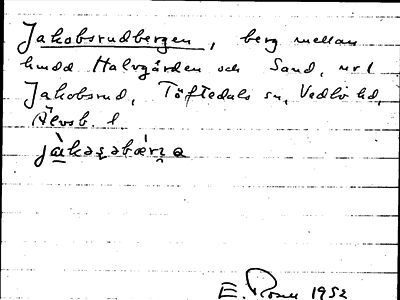 Jakobsrudbergen, berg mellan
hmdd Halvgården och Sand, nr 1
Jakobsrud, Töftedals sn, Vedbo hd,
Älvsb. l
E. Rosell 1952